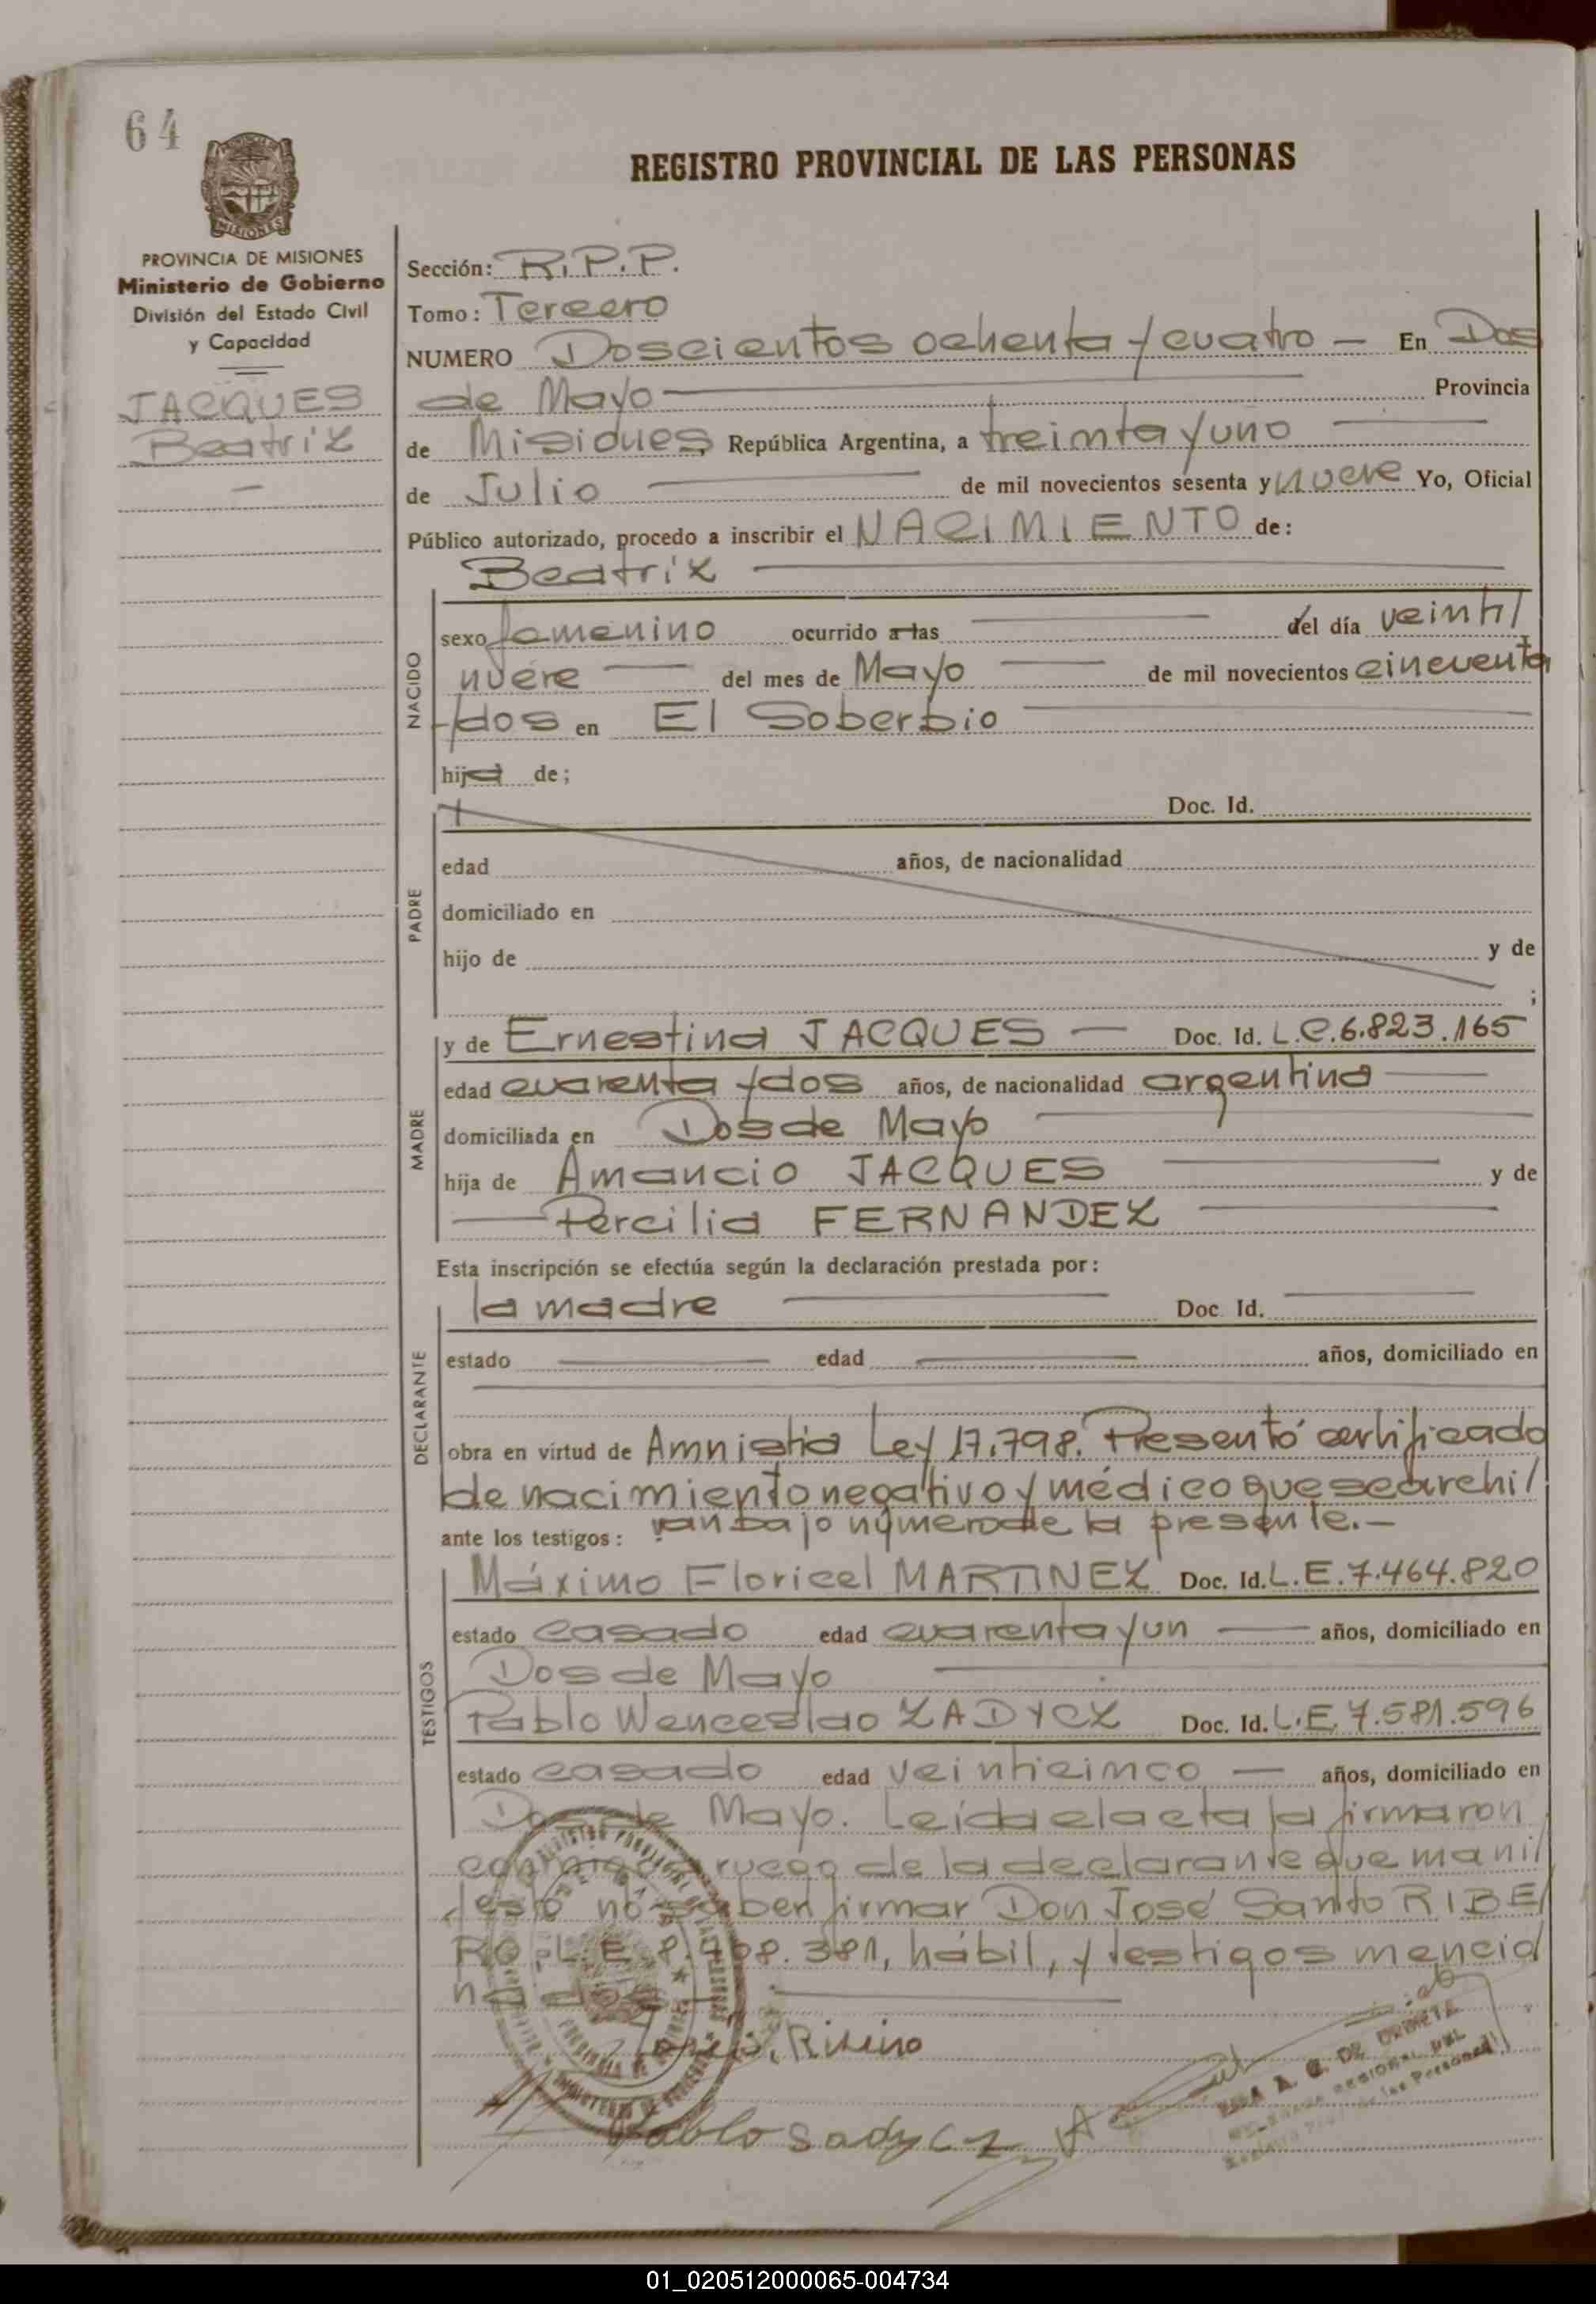 64
REGISTRO PROVINCIAL DE LAS PERSONAS
MISIONES
PROVINCIA DE MISIONES
Ministerio de Gobierno
División del Estado Civil
y Capacidad
JACQUES
Beatriz
Sección: R.P.P.
Tomo: Tercero
NUMERO Doscientos ochenta y cuatro — En Dos
de Mayo — Provincia
de Misiones, República Argentina, a treinta y uno —
de Julio — de mil novecientos sesenta y nueve Yo, Oficial
Público autorizado, procedo a inscribir el NACIMIENTO de:
Beatriz —
NACIDO
sexo femenino ocurrido a las — del día veinti/
nueve — del mes de Mayo — de mil novecientos cincuenta
y dos en El Soberbio —
hija de;
PADRE
Doc. Id.
edad años, de nacionalidad
domiciliado en
hijo de y de
;
MADRE
y de Ernestina JACQUES — Doc. Id. L.C.6.823.165
edad cuarenta y dos años, de nacionalidad argentina —
domiciliada en Dos de Mayo —
hija de Amancio JACQUES — y de
— Percilia FERNANDEZ —
Esta inscripción se efectúa según la declaración prestada por:
DECLARANTE
la madre — Doc. Id. —
estado — edad — años, domiciliado en
—
obra en virtud de Amnistia Ley 17.798. Presentó certificado
de nacimiento negativo y médico que se archi/
ante los testigos: van bajo número de la presente.—
TESTIGOS
Máximo Floricel MARTINEZ Doc. Id. L.E.7.464.820
estado casado edad cuarenta y un — años, domiciliado en
Dos de Mayo —
Pablo Wenceslao ZADYCZ Doc. Id. L.E.7.581.596
estado casado edad veinticinco — años, domiciliado en
Dos de Mayo. Leída el acta la firmaron
conmigo a ruego de la declarante que mani/
festó no saber firmar Don José Santo RIBE/
RO, L.E. 8.408.381, hábil, y testigos mencio/
nados —
Pablo Sadycz
A. G. DE
REGIONAL DEL
de las Personas
01_020512000065-004734